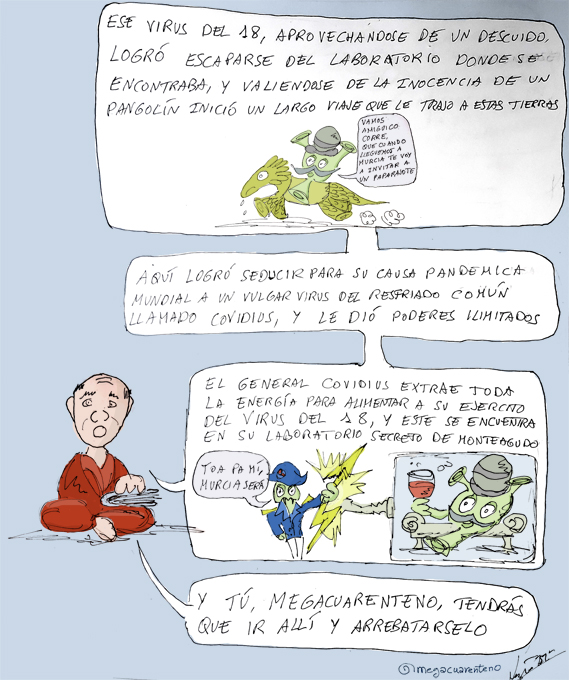 ESE VIRUS DEL 18, APROVECHÁNDOSE DE UN DESCUIDO,
LOGRÓ ESCAPARSE DEL LABORATORIO DONDE SE
ENCONTRABA, Y VALIENDOSE DE LA INOCENCIA DE UN
PANGOLÍN INICIÓ UN LARGO VIAJE QUE LE TRAJO A ESTAS TIERRAS
VAMOS
AMIGUICO
CORRE,
QUE CUANDO
LLEGUEMOS A
MURCIA TE VOY
A INVITAR A
UN PAPARAJOTE
AQUÍ LOGRÓ SEDUCIR PARA SU CAUSA PANDEMICA
MUNDIAL A UN VULGAR VIRUS DEL RESFRIADO COMÚN
LLAMADO COVIDIUS, Y LE DIÓ PODERES ILIMITADOS
EL GENERAL COVIDIUS EXTRAE TODA
LA ENERGÍA PARA ALIMENTAR A SU EJERCITO
DEL VIRUS DEL 18, Y ESTE SE ENCUENTRA
EN SU LABORATORIO SECRETO DE MONTEAGUDO
TOA PA MÍ,
MURCIA SERÁ
Y TÚ, MEGACUARENTENO, TENDRÁS
QUE IR ALLÍ Y ARREBATARSELO
@megacuarenteno